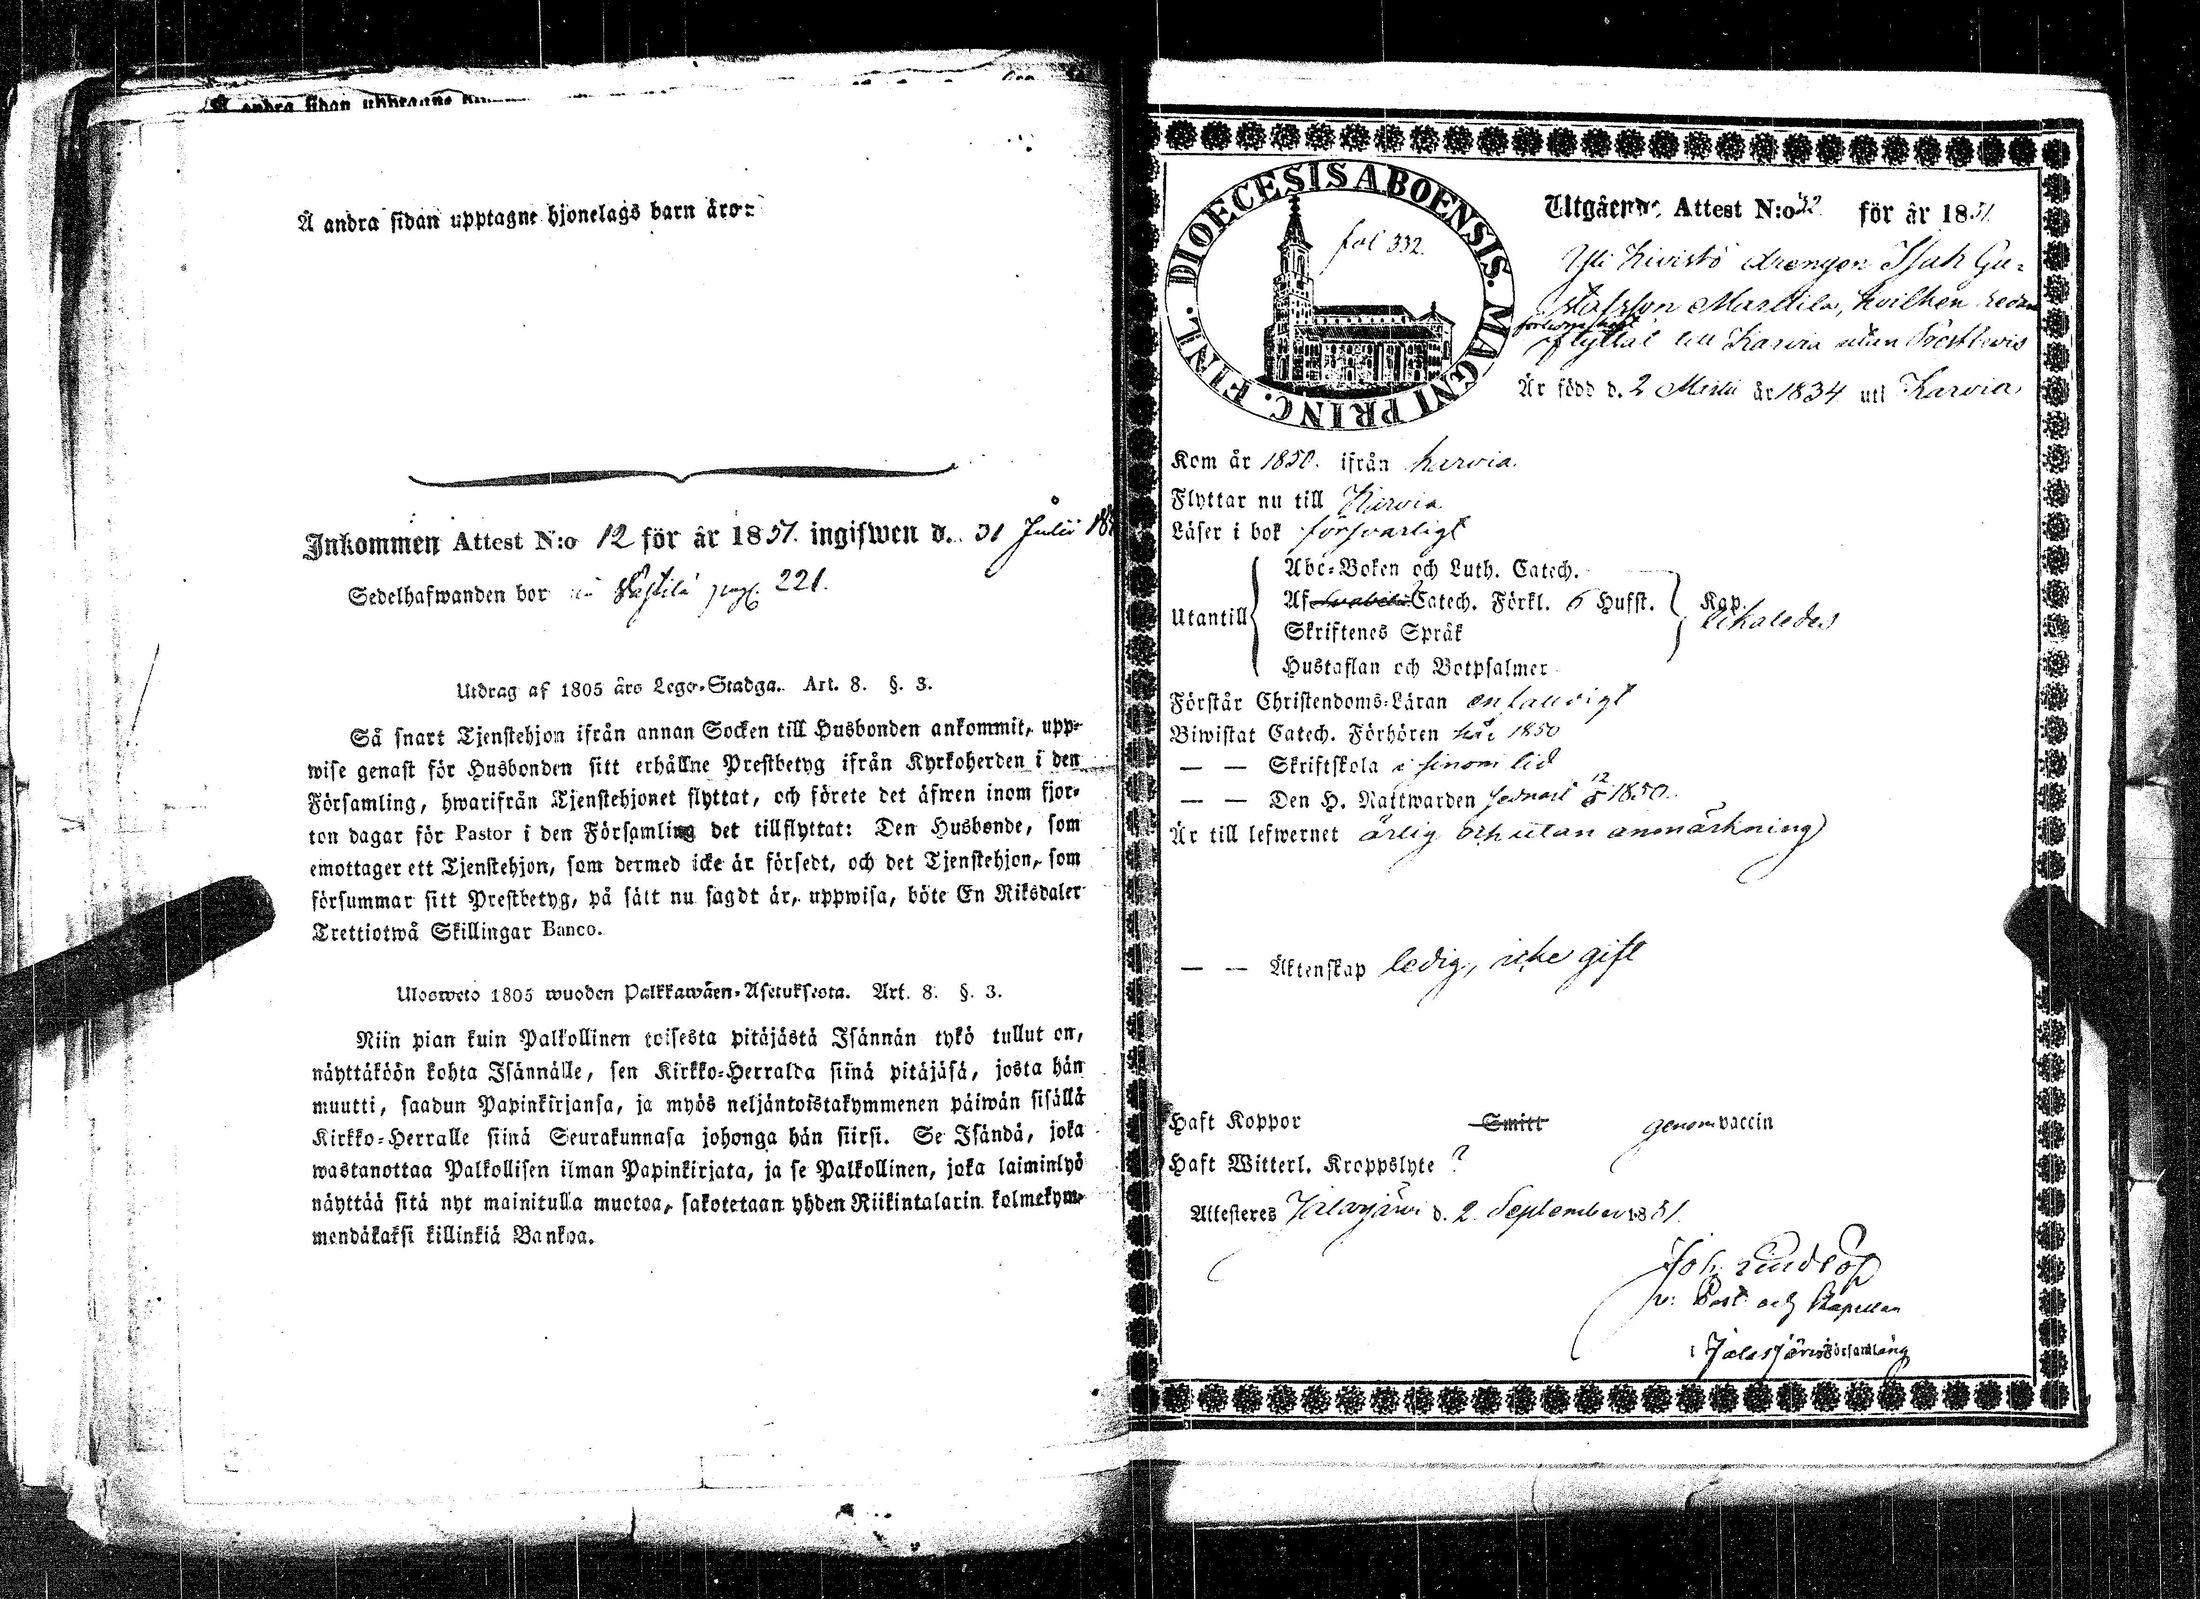 Å andra sidan upptagne hjon
Å andra sidan upptagne hjonelags barn äro:
Inkommen Attest N:o 12 för år 1851. ingifwen d. 31 Julii 18
Sedelhafwanden bor pag. 221.
Utdrag af 1805 års Lego-Stadga. Art. 8. §. 3.
Så snart Tjenstehjon ifrån annan Socken till Husbonden ankommit, upp-
wise genast för Husbonden sitt erhållne Prestbetyg ifrån Kyrkoherden i den
Församling, hwarifrån Tjenstehjonet flyttat, och förete det äfwen inom fjor-
ton dagar för Pastor i den Församling det tillflyttat: Den Husbonde, som
emottager ett Tjenstehjon, som dermed icke är försedt, och det Tjenstehjon, som
försummar sitt Prestbetyg, på sätt nu sagdt är, uppwisa, böte En Riksdaler
Trettiotwå Skillingar Banco.
Ulosweto 1805 wuoden Palkkawäen-Asetuksesta. Art. 8. §. 3.
Niin pian kuin Palkollinen toisesta pitäjästä Isännän tykö tullut on,
näyttäköön kohta Isännälle, sen Kirkko-Herralda siinä pitäjäsä, josta hän
muutti, saadun Papinkirjansa, ja myös neljäntoistakymmenen päiwän sisällä
Kirkko-Herralle siinä Seurakunnasa johonga hän siirsi. Se Isändä, joka
wastanottaa Palkollisen ilman Papinkirjata, ja se Palkollinen, joka laiminlyö
näyttää sitä nyt mainitulla muotoa, sakotetaan yhden Riikintalarin kolmekym-
mendäkaksi killinkiä Bankoa.
DIOECESIS ABOENSIS. MAGNI PRINC. FINL.
fol 332.
Utgående Attest N:o 52. för år 1851.
Yli Kivistö drengen Isak Gu-
stafsson Marttila, hvilken redan
flyttat till Karvia utan Prestbevis
Är född d. 2 Martii år 1834 uti Karvia
Kom år 1850. ifrån Karvia.
Flyttar nu till Karvia
Läser i bok försvarligt
Abc-Boken och Luth. Catech.
Utantill Af Svebelii Catech. Förkl. 6 Hufst. Kap. likaledes
Skriftenes Språk
Hustaflan och Botpsalmer
Förstår Christendoms-Läran enfaldigt
Biwistat Catech. Förhören här 1850
— — Skriftskola i sinom tid
— — Den H. Nattwarden sednast 12/5 1850.
Är till lefwernet ärlig och utan anmärkning
— — Äktenskap ledig, icke gift
Haft Koppor Smitt genom vaccin
Haft Witterl. Kroppslyte ?
Attesteres Jalasjärvi d. 2 September 1851.
Joh. Lindlöf
v: Past. och Kapellan
i Jalasjärvi Församling